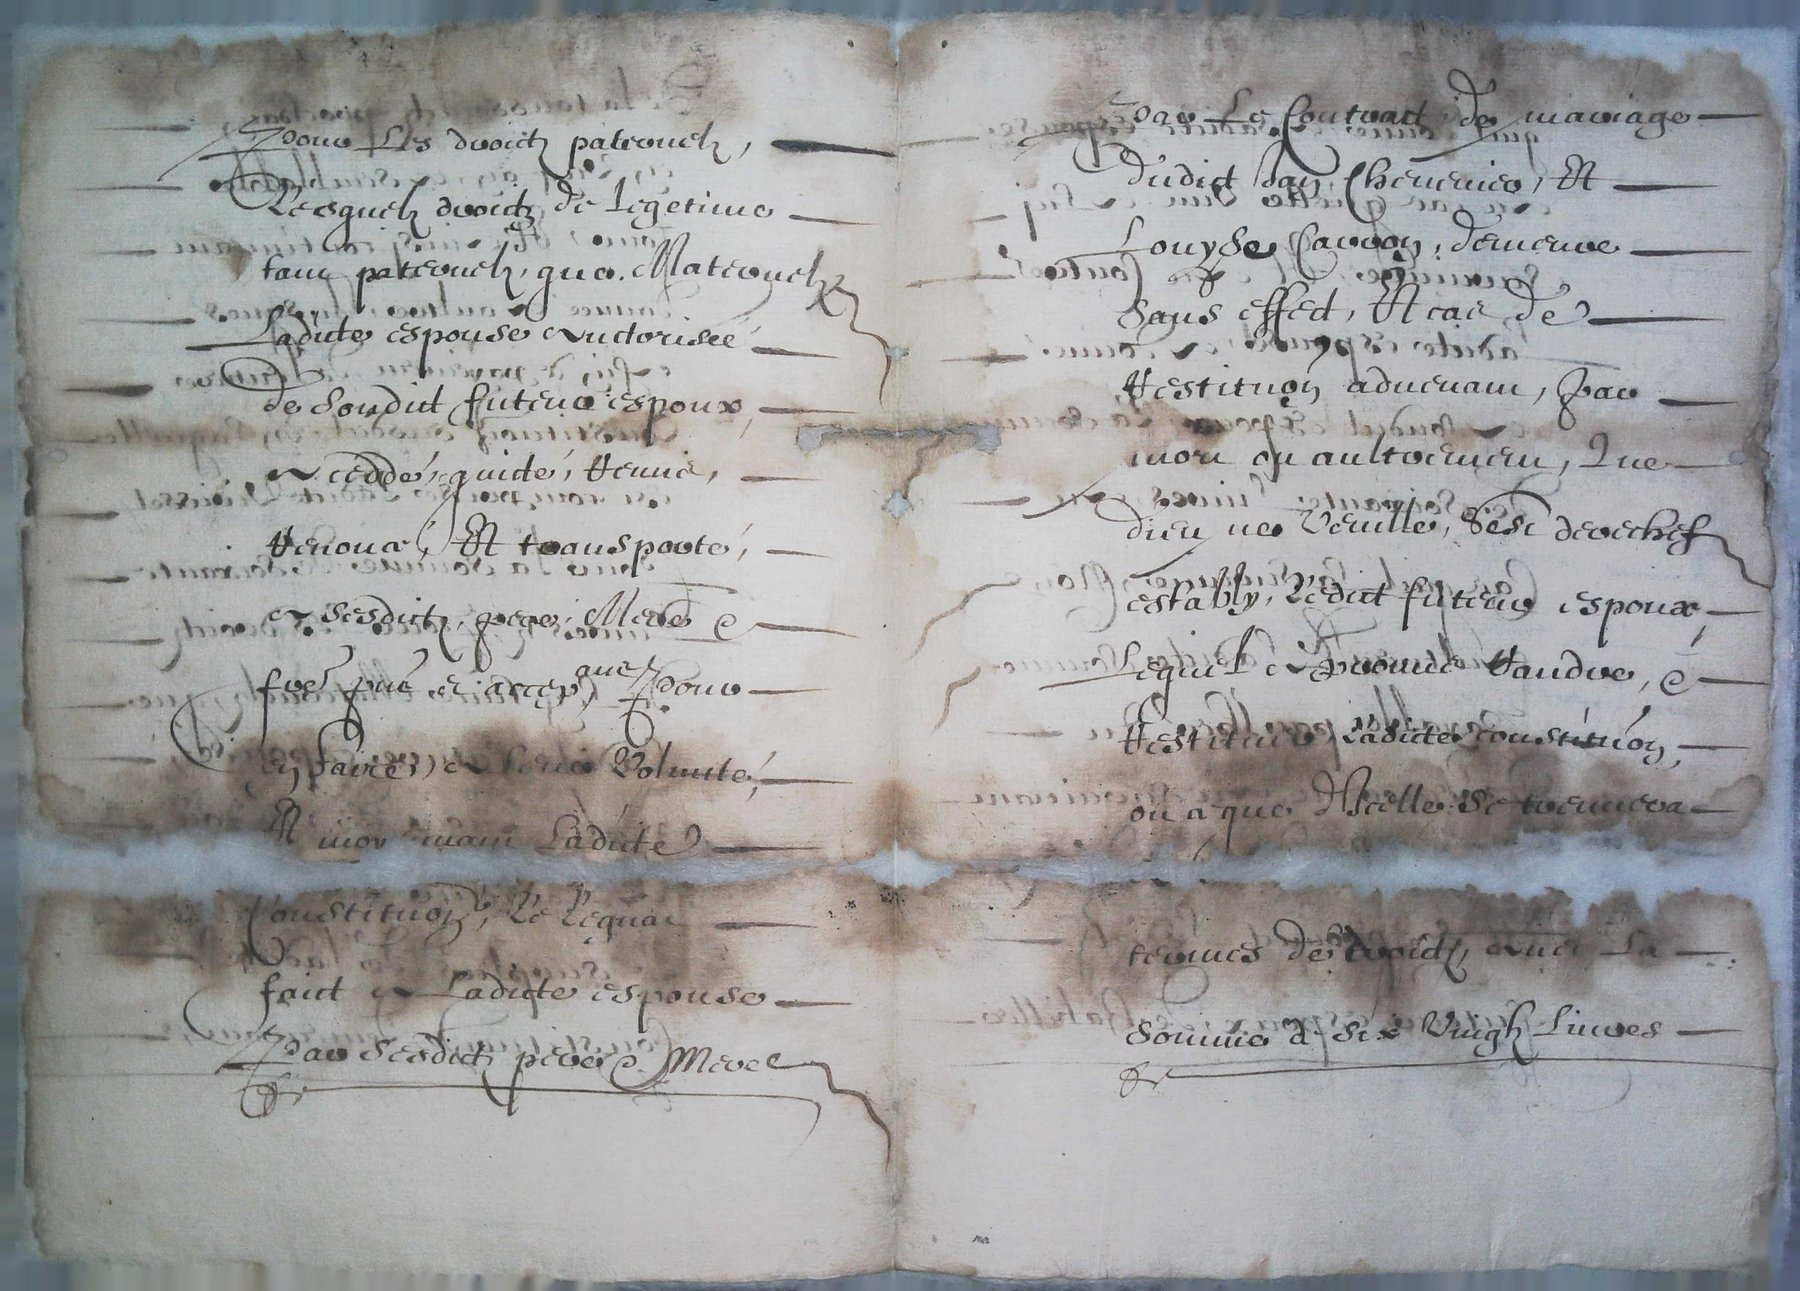 Pour les droictz paternelz,
Lesquelz droictz de legetime
tant paternelz, que Maternelz
Ladicte espouse auctorisée
de sondict futeur espoux,
a ceddé, quicté, remis,
renoncé, Et transporté,
a sesdictz pere, Mere &
frere pnt et acceptans Pour
en faire a leur Volunté,
Et moyenant Ladicte
Constitution, Le Legat
faict a Ladicte espouse
Par sesdictz pere & Mere
Par Le Contract de mariage
dudict San Chenenier, Et
Louyse Carron, demeure
Sans effect, Et cas de
restitution aduenant, Par
mort ou aultrement, Que
dieu ne Veuille, S'est derechef
estably, Ledict futeur espoux,
Lequel a promis Randre, &
Restituer Ladicte constitution,
ou a que d'Icelle se treuuera
termes de droictz, auec La
Somme de Six Vingtz Liures